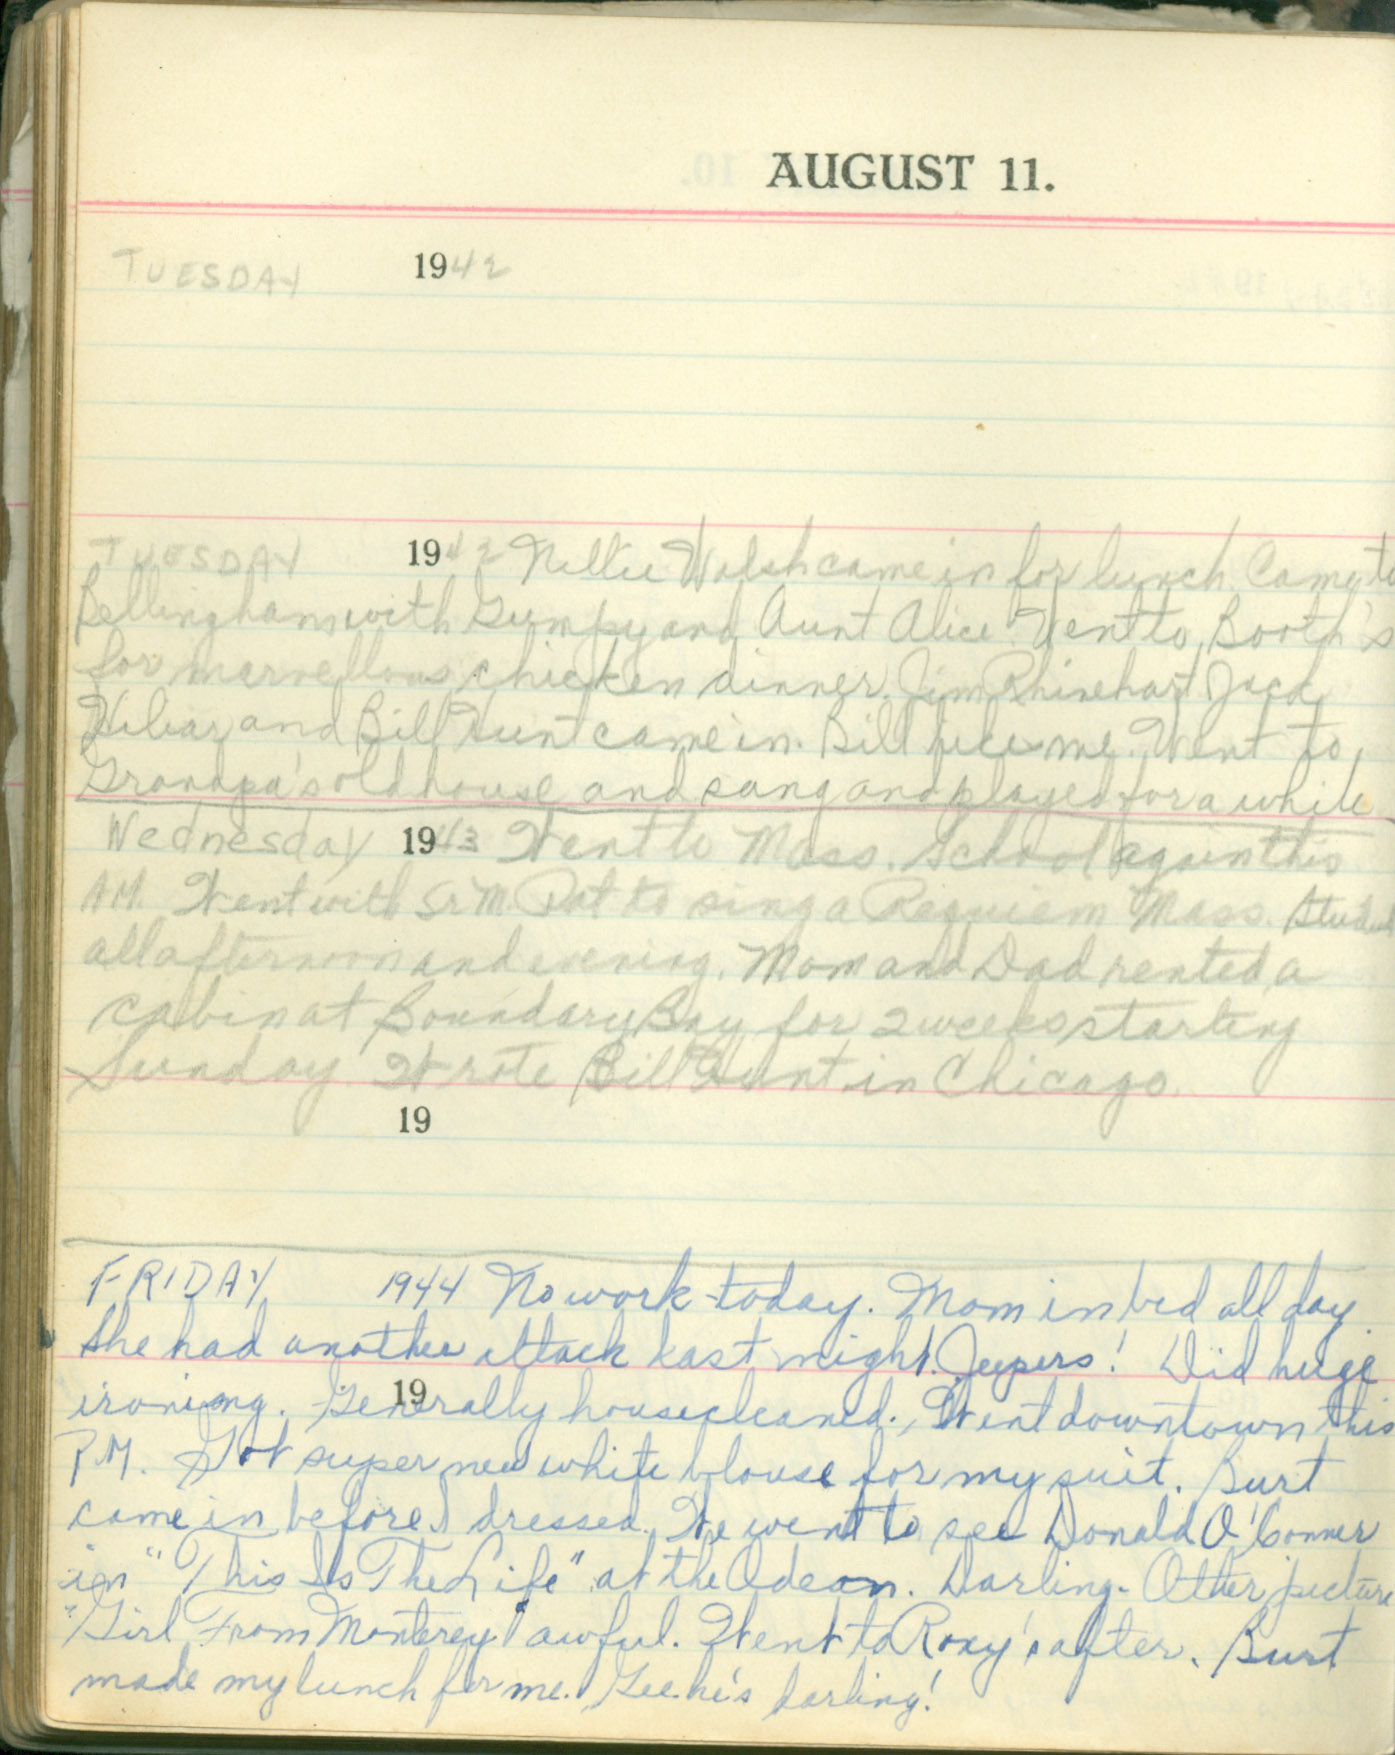 AUGUST 11.
TUESDAY 1942
TUESDAY 1942 Nellie Walsh came in for lunch. Came to
Bellingham with Gumpy and Aunt Alice. Went to Booth's
for marvellous chicken dinner. Jim Rhinehart Jack
and Bill Hunt came in. Bill likes me. Went to
Grandpa's old house and sang and played for a while
Wednesday 1943 Went to Mass. School again this
AM. Went with Sr M. Pat to sing a Requiem Mass.
all afternoon and evening. Mom and Dad rented a
cabin at Boundary Bay for 2 weeks starting
Sunday. Wrote Bill Hunt in Chicago.
19
FRIDAY 1944 No work today. Mom in bed all day.
She had another attack last night. Jeepers! Did huge
19
ironiong. Generally housecleaned. Went downtown this
P.M. Got super new white blouse for my suit. Burt
came in before I dressed. We went to see Donald O'Conner
in "This Is The Life" at the Odeon. Darling. Other picture
"Girl From Monterey" awful. Went to Roxy's after. Burt
made my lunch for me. Gee he's darling!